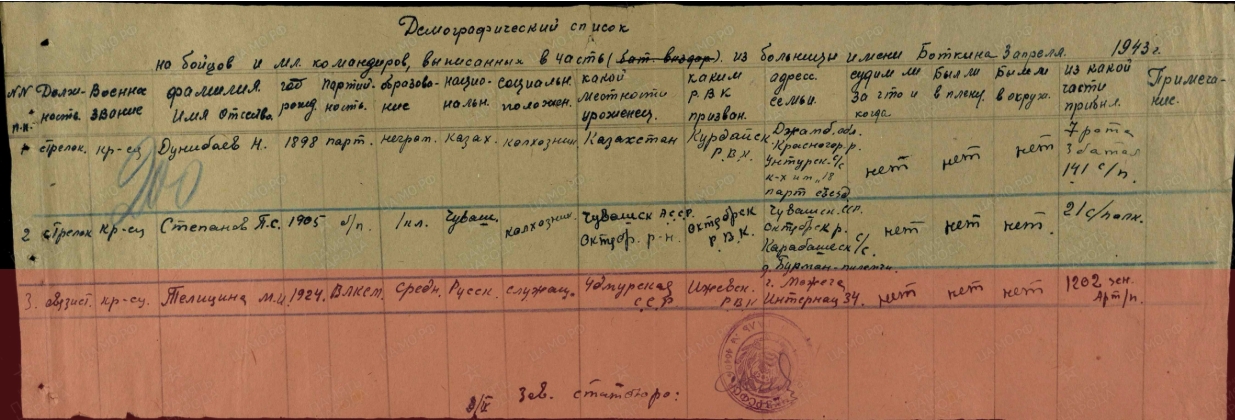 Демографический список
на бойцов и мл. командиров, выписанных в часть (бат. выздор.) из больницы имени Боткина 3 апреля 1943 г.
NN п.п. Должность. Военное звание фамилия Имя Отчество. год рожд. Партийность. образование национальн. социальн. положен. какой местности уроженец. каким Р.В.К призван. адресс. семьи. судим ли за что и когда Были ли в плену. Были ли в окруж. из какой части прибыл. Примечание.
стрелок кр-ец Дунибаев Н. 1898 парт. неграм. казах. колхозник Казахстан Курдайск Р.В.К. Джамб. обл. Красногор. р. с/с к-х им. 18 парт съезд нет нет нет 7 рота 3 батал 141 с/п.
200
2 стрелок кр-ец Степанов П.С. 1905 б/п. 1 кл. Чуваш. колхозник. Чувашск АССР. Октябр. р-н. Октябрск Р.В.К. Чувашск. ССР. Октябрск р. Карабашск с/с. д. нет нет нет 21 с/полк.
3. кр-ец. Телицина М.И. 1924. ВЛКСМ. средн. Русск. служащ. Удмурская ССР Ижевск. Р.ВК г. Можега Интернац 34. нет нет нет 1202 Арт/п.
Зав. статбюро: